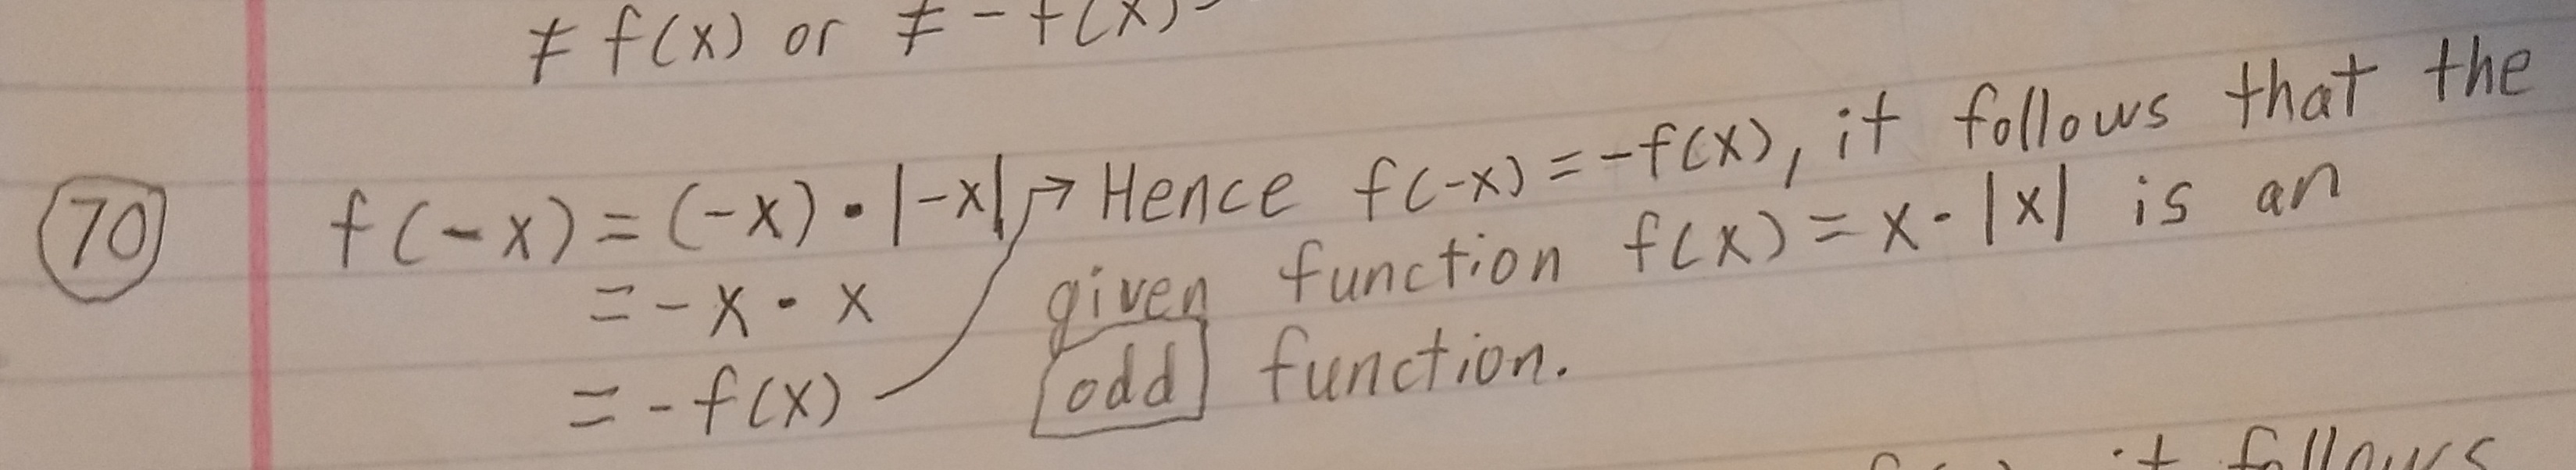 ≠ f(x) or ≠ -f(x)
70 f(-x) = (-x) · |-x| → Hence f(-x) = -f(x), it follows that the
= -x · x given function f(x) = x · |x| is an
= -f(x) odd function.
it follows